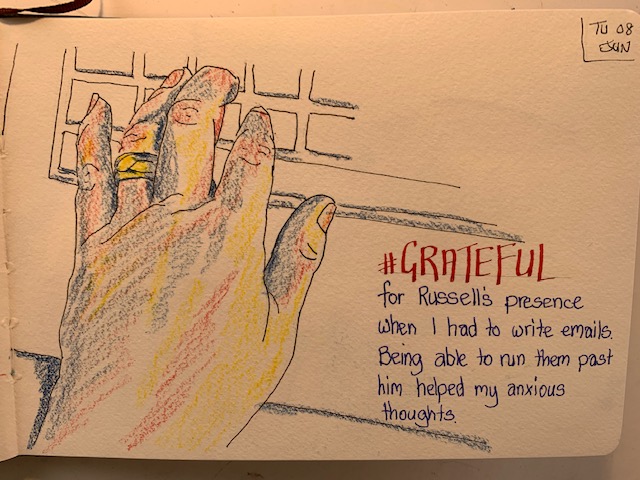 TU 08
EJUN
#GRATEFUL
for Russell's presence
when I had to write emails.
Being able to run them past
him helped my anxious
thoughts.